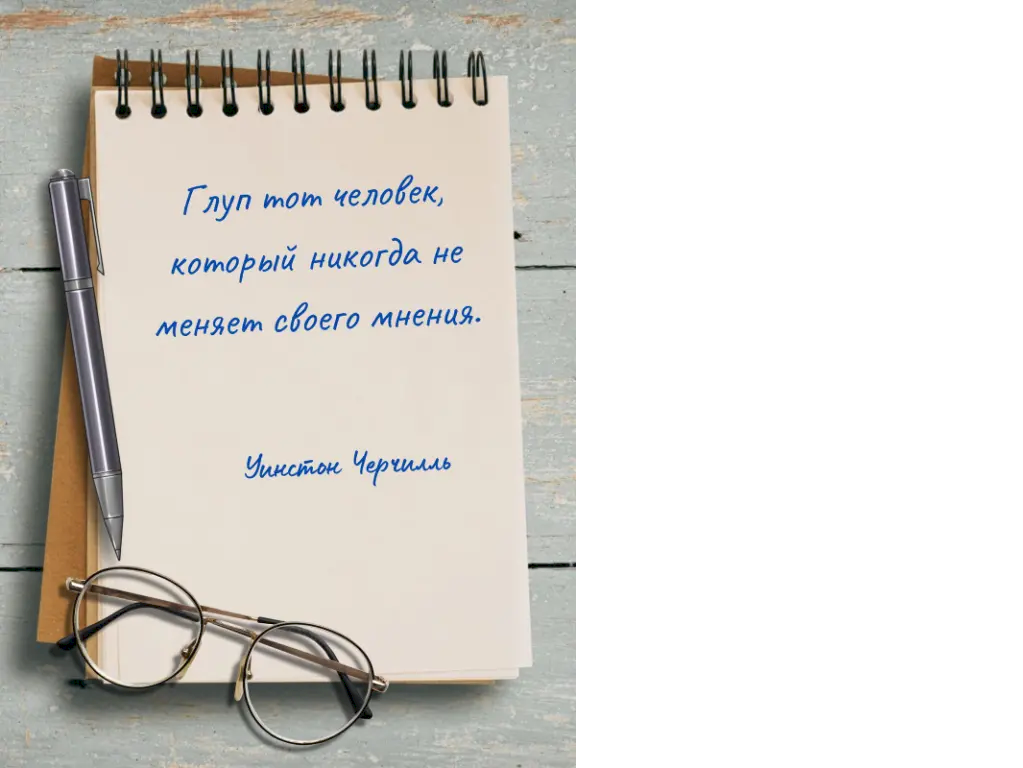 Глуп тот человек,
который никогда не
меняет своего мнения.
Уинстон Черчилль